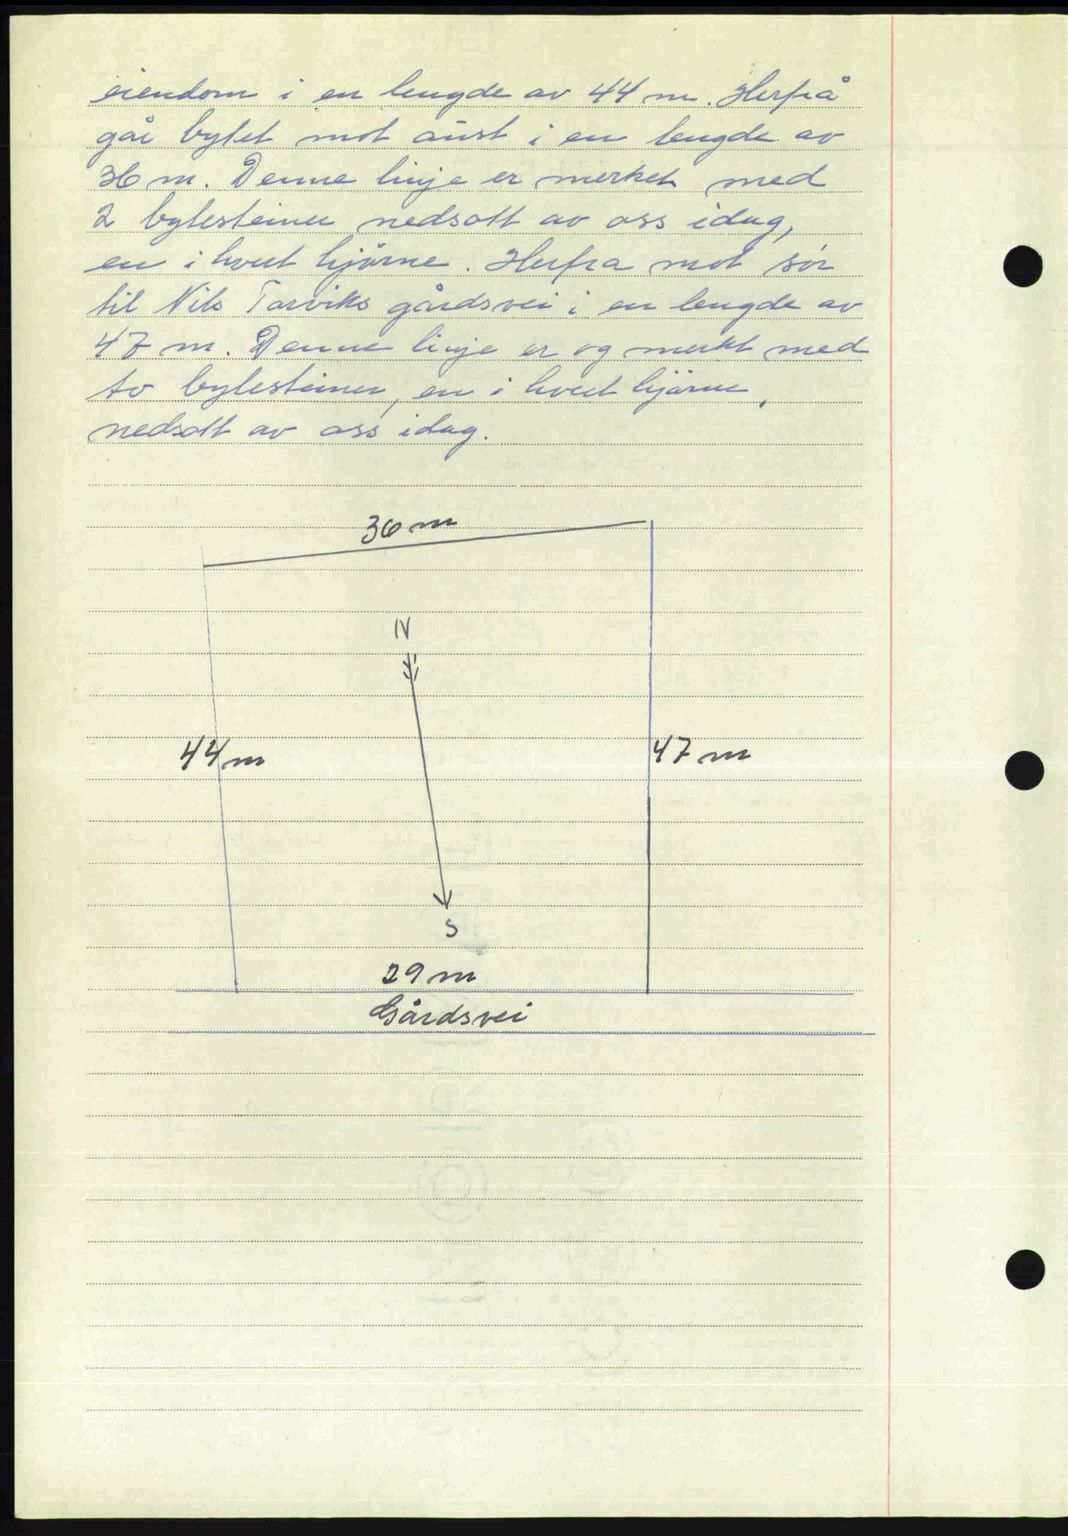 eiendom i en lengde av 44 m. Herfrå
går bytet mot aust i en lengde av
36 m. Denne linje er merket med
2 bytesteiner nedsatt av oss idag,
en i hvert hjörne. Herfra mot sör
til Nils Torviks gårdsvei i en lengde av
47 m. Denne linje er og merkt med
to bytesteiner, en i hvert hjörne,
nedsatt av oss idag.
36 m
N
44 m
47 m
S
29 m
Gårdsvei